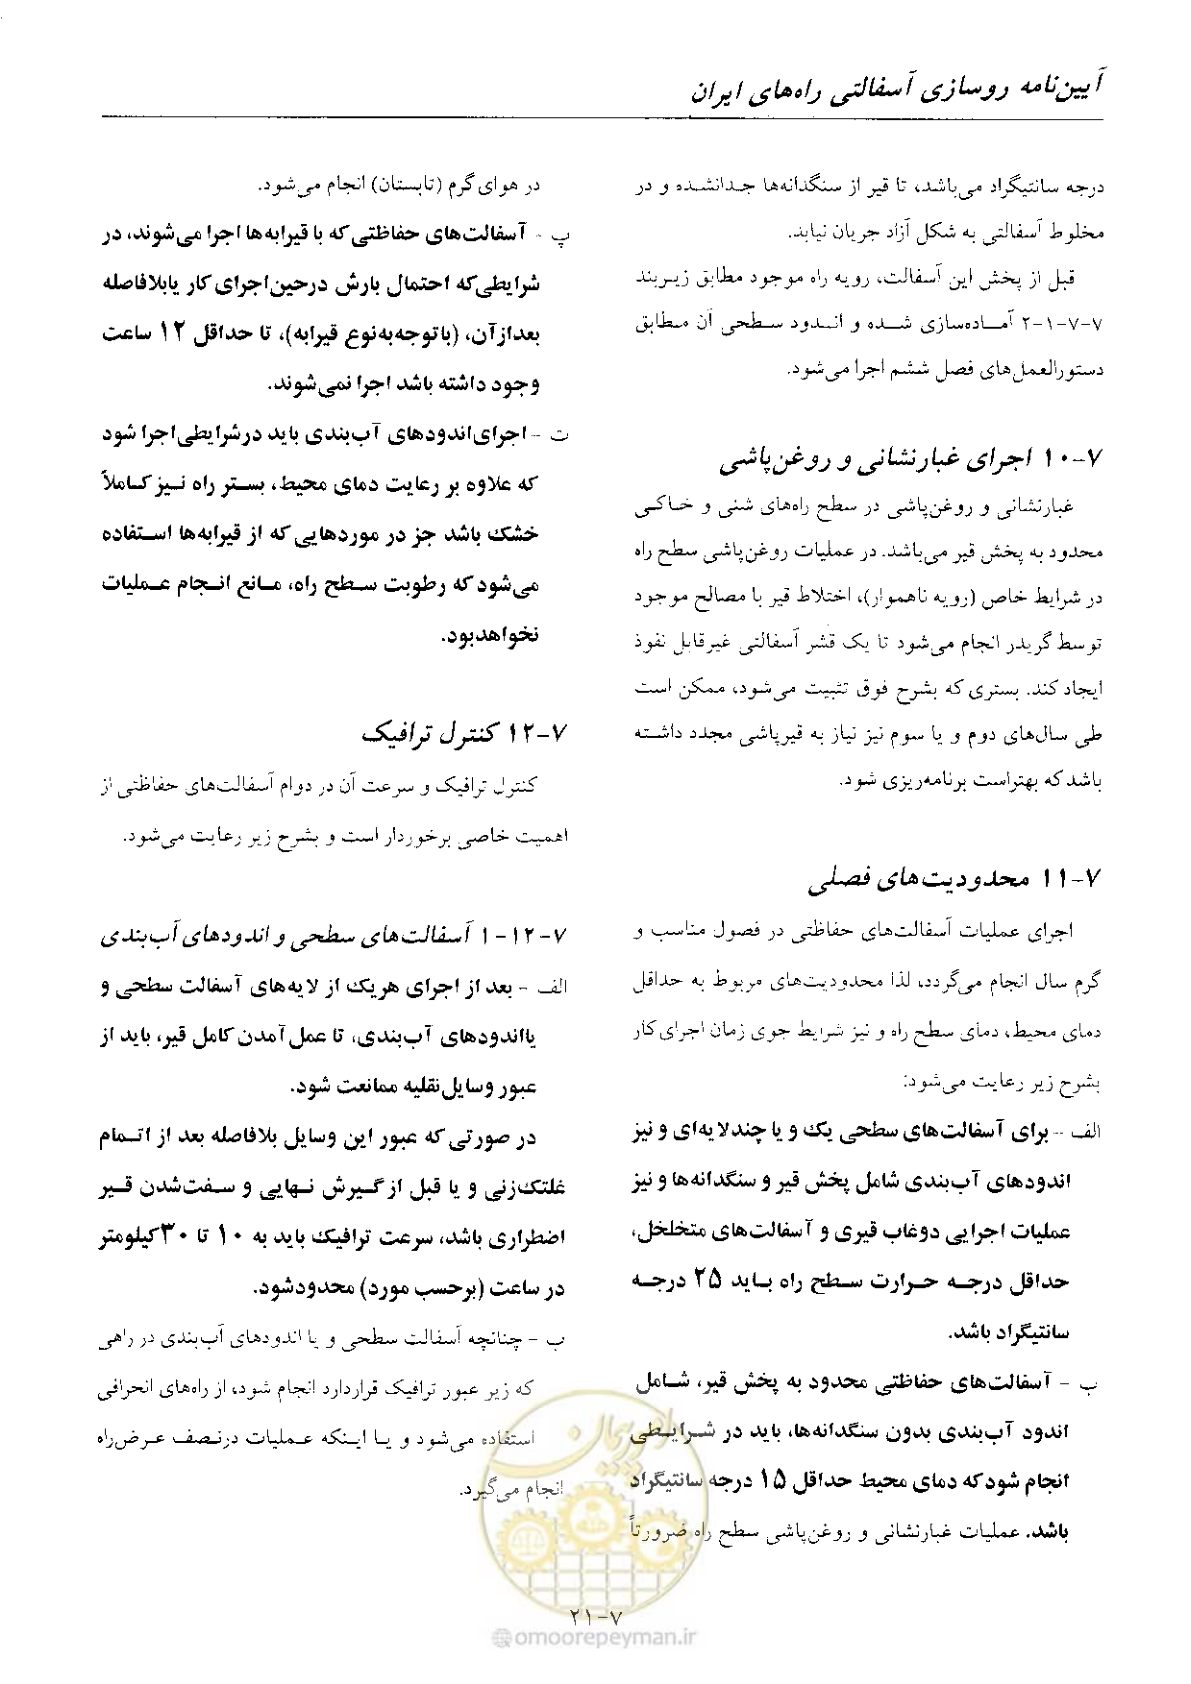 آیین‌نامه روسازی آسفالتی راه‌های ایران
درجه سانتیگراد می‌باشد، تا قیر از سنگدانه‌ها جـدانشده و در
مخلوط آسفالتی به شکل آزاد جریان نیابد.
قبل از پخش این آسفالت، رویه راه موجود مطابق زیـربند
۷-۷-۱-۲ آمـاده‌سازی شـده و انـدود سـطحی آن مـطابق
دستورالعمل‌های فصل ششم اجرا می‌شود.
۷-۱۰ اجرای غبارنشانی و روغن‌پاشی
غبارنشانی و روغن‌پاشی در سطح راه‌های شنی و خـاکـی
محدود به پخش قیر می‌باشد. در عملیات روغن‌پاشی سطح راه
در شرایط خاص (رویه ناهموار)، اختلاط قیر با مصالح موجود
توسط گریدر انجام می‌شود تا یک قشر آسفالتی غیرقابل نفوذ
ایجاد کند. بستری که بشرح فوق تثبیت می‌شود، ممکن است
طی سال‌های دوم و یا سوم نیز نیاز به قیرپاشی مجدد داشـته
باشد که بهتراست برنامه‌ریزی شود.
۷-۱۱ محدودیت‌های فصلی
اجرای عملیات آسفالت‌های حفاظتی در فصول مناسب و
گرم سال انجام می‌گردد، لذا محدودیت‌های مربوط به حداقل
دمای محیط، دمای سطح راه و نیز شرایط جوی زمان اجرای کار
بشرح زیر رعایت می‌شود:
الف - برای آسفالت‌های سطحی یک و یا چندلایه‌ای و نیز
اندودهای آب‌بندی شامل پخش قیر و سنگدانه‌ها و نیز
عملیات اجرایی دوغاب قیری و آسفالت‌های متخلخل،
حداقل درجـه حـرارت سـطح راه بـاید ۲۵ درجـه
سانتیگراد باشد.
ب - آسفالت‌های حفاظتی محدود به پخش قیر، شـامل
اندود آب‌بندی بدون سنگدانه‌ها، باید در شـرایـطی
انجام شود که دمای محیط حداقل ۱۵ درجه سانتیگراد
باشد. عملیات غبارنشانی و روغن‌پاشی سطح راه ضرورتاً
در هوای گرم (تابستان) انجام می‌شود.
پ - آسفالت‌های حفاظتی که با قیرابه‌ها اجرا می‌شوند، در
شرایطی‌که احتمال بارش درحین‌اجرای کار یابلافاصله
بعدازآن، (باتوجه‌به‌نوع قیرابه)، تا حداقل ۱۲ ساعت
وجود داشته باشد اجرا نمی‌شوند.
ت - اجرای‌اندودهای آب‌بندی باید درشرایطی‌اجرا شود
که علاوه بر رعایت دمای محیط، بستر راه نـیز کـاملاً
خشک باشد جز در موردهایی که از قیرابه‌ها اسـتفاده
می‌شود که رطوبت سـطح راه، مـانع انـجام عـملیات
نخواهدبود.
۷-۱۲ کنترل ترافیک
کنترل ترافیک و سرعت آن در دوام آسفالت‌های حفاظتی از
اهمیت خاصی برخوردار است و بشرح زیر رعایت می‌شود.
۷-۱۲-۱ آسفالت‌های سطحی و اندودهای آب‌بندی
الف - بعد از اجرای هریک از لایه‌های آسفالت سطحی و
یااندودهای آب‌بندی، تا عمل آمدن کامل قیر، باید از
عبور وسایل‌نقلیه ممانعت شود.
در صورتی که عبور این وسایل بلافاصله بعد از اتـمام
غلتک‌زنی و یا قبل از گـیرش نـهایی و سـفت‌شدن قـیر
اضطراری باشد، سرعت ترافیک باید به ۱۰ تا ۳۰کیلومتر
در ساعت (برحسب مورد) محدودشود.
ب - چنانچه آسفالت سطحی و یا اندودهای آب‌بندی در راهی
که زیر عبور ترافیک قراردارد انجام شود، از راه‌های انحرافی
استفاده می‌شود و یـا ایـنکه عـملیات درنـصف عـرض‌راه
انجام می‌گیرد.
امور پیمان
۷-۲۱
@omoorepeyman.ir